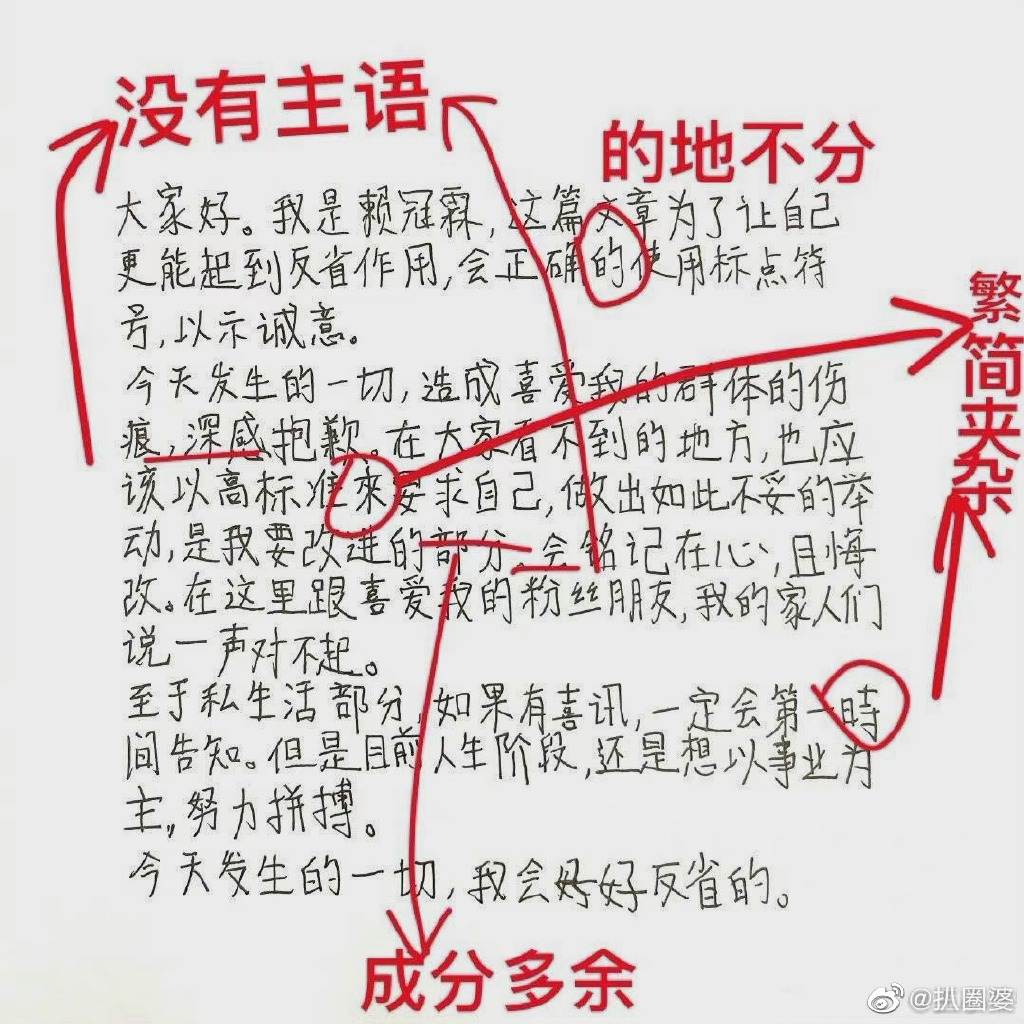 没有主语
的地不分
大家好。我是赖冠霖,这篇文章为了让自己
更能起到反省作用,会正确的使用标点符
号,以示诚意。
繁简夹杂
今天发生的一切,造成喜爱我的群体的伤
痕,深感抱歉。在大家看不到的地方,也应
该以高标准來要求自己,做出如此不妥的举
动,是我要改进的部分。会铭记在心,且悔
改。在这里跟喜爱我的粉丝朋友,我的家人们
说一声对不起。
至于私生活部分,如果有喜讯,一定会第一時
间告知。但是目前人生阶段,还是想以事业为
主,努力拼搏。
今天发生的一切,我会好好反省的。
成分多余
@扒圈婆